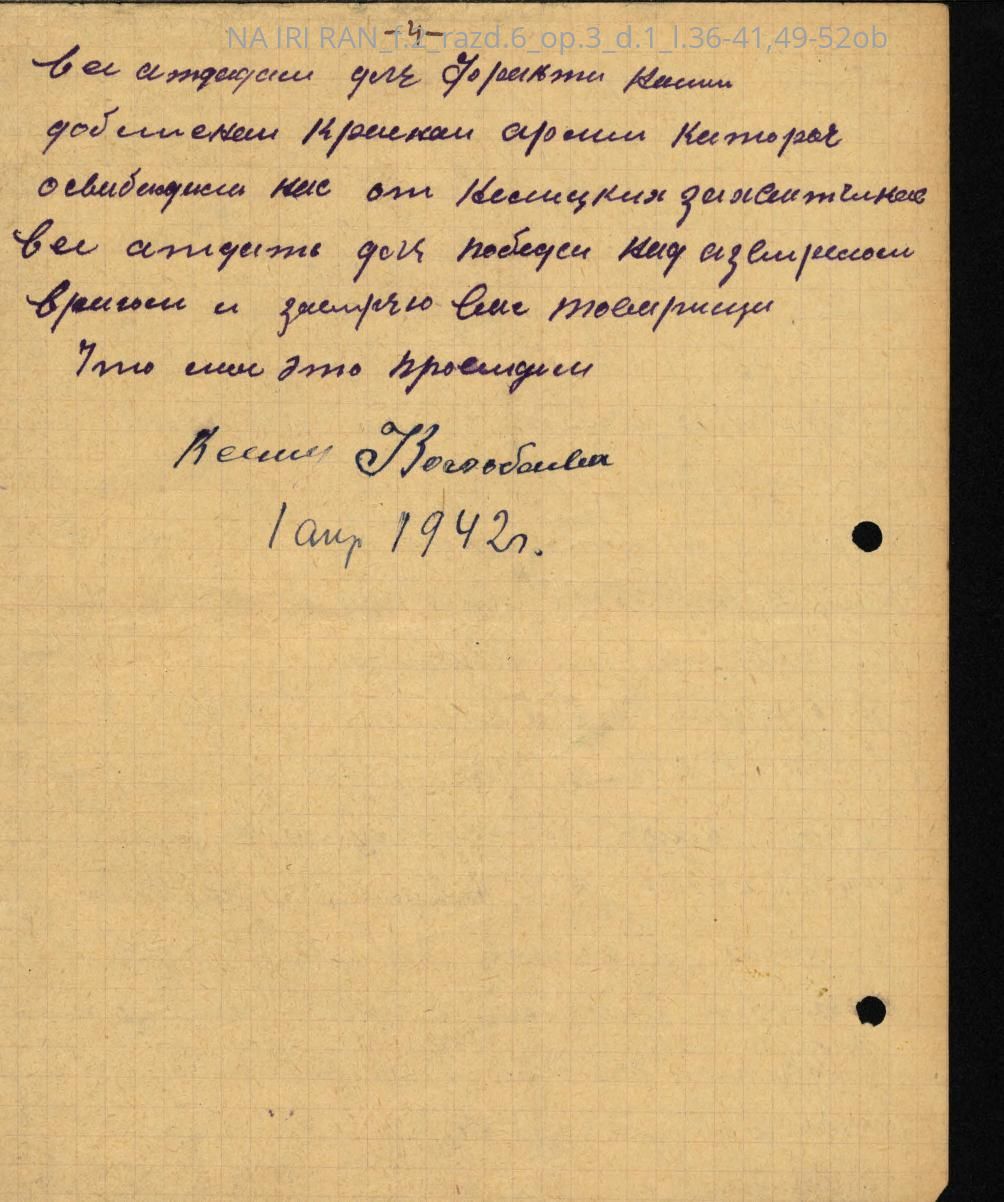 -4-
NA IRI RAN_f.2_razd.6_op.3_d.1_l.36-41,49-52ob
все атдадим для Форанта нашей
доблиснай Краснай армии катороя
освабадила нас от Немецких захватчиков
все атдать для победы над азверелом
врагом и заверяю вас товарищи
Что мы это проведем
1 апр 1942г.